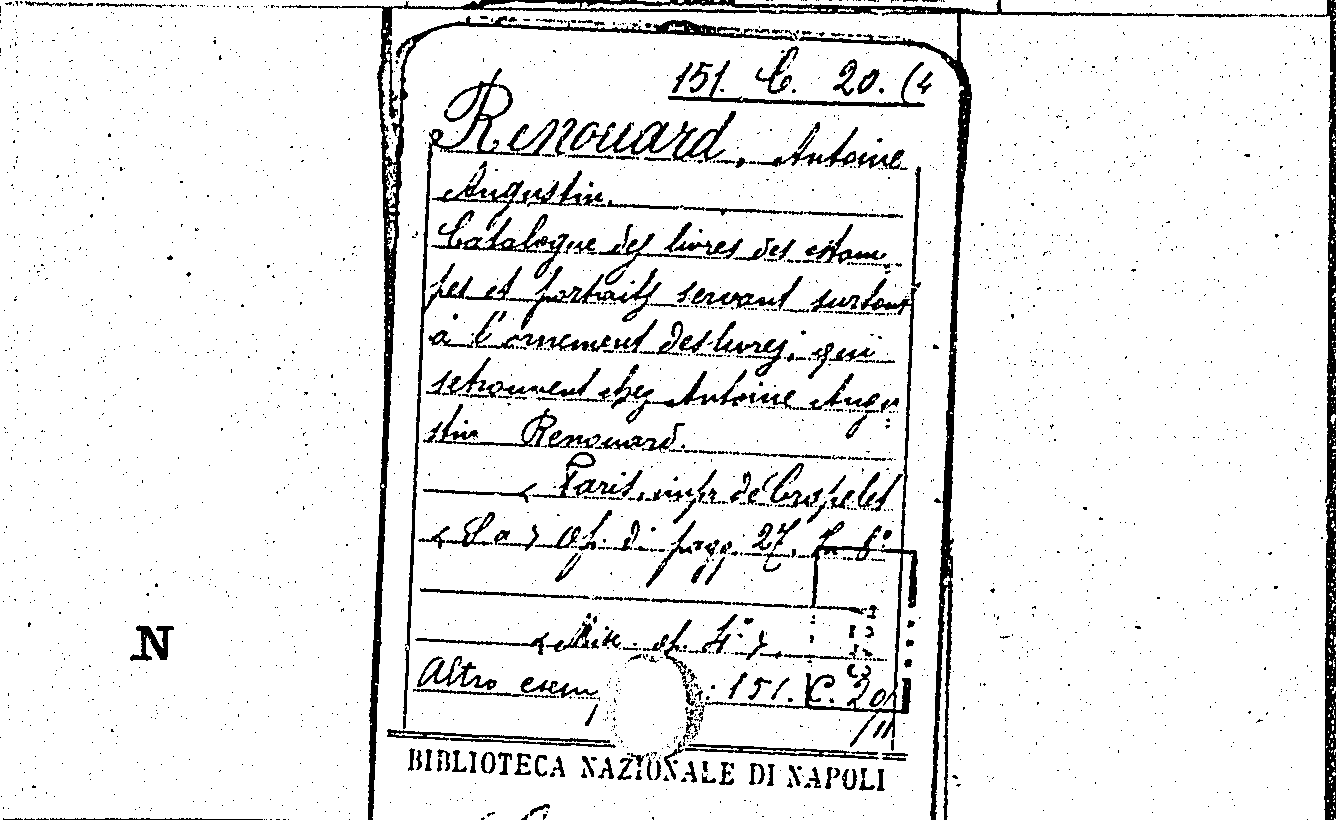 151. C. 20. (4
Renouard, Antoine
Augustin.
Catalogue des livres des estam-
pes et portraits servant surtout
à l'ornement des livres, qui
se trouvent chez Antoine Augu-
stin Renouard.
Paris, impr. de Crapelet
<S a> Op. di pagg. 27. In 8°
<Misc. op. 4°>.
Altro esemp : 151. C. 20
/11
BIBLIOTECA NAZIONALE DI NAPOLI
N